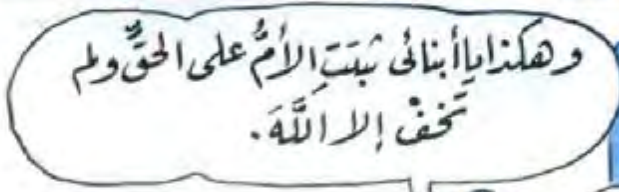 وهكذا يا أبنائى ثبتتِ الأمُّ على الحقِّ ولم
تَخفْ إلا اللَّهَ.